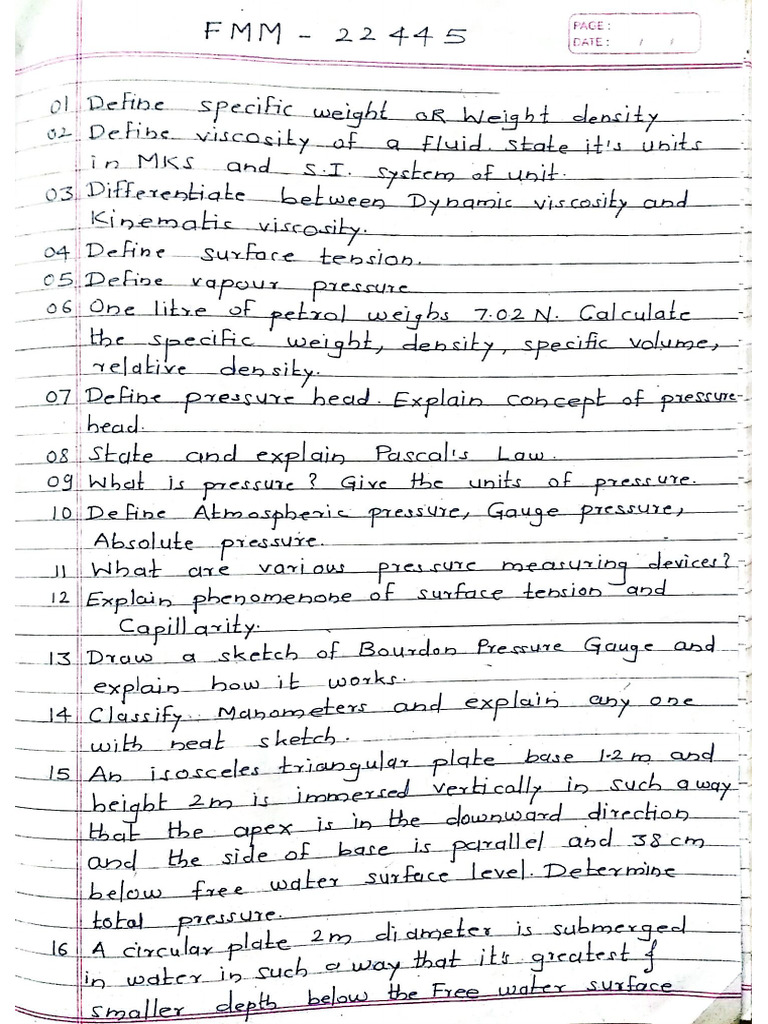 FMM - 22445
PAGE:
DATE: / /
01 Define specific weight OR Weight density
02 Define viscosity of a fluid. State it's units
in MKS and S.I. system of unit.
03 Differentiate between Dynamic viscosity and
Kinematic viscosity.
04 Define surface tension.
05 Define vapour pressure
06 One litre of petrol weighs 7.02 N. Calculate
the specific weight, density, specific volume,
relative density.
07 Define pressure head. Explain concept of pressure
head.
08 State and explain Pascal's Law.
09 What is pressure? Give the units of pressure.
10 Define Atmospheric pressure, Gauge pressure,
Absolute pressure.
11 What are various pressure measuring devices?
12 Explain phenomenone of surface tension and
Capillarity.
13 Draw a sketch of Bourdon Pressure Gauge and
explain how it works.
14 Classify Manometers and explain any one
with neat sketch.
15 An isosceles triangular plate base 1.2 m and
height 2m is immersed vertically in such a way
that the apex is in the downward direction
and the side of base is parallel and 38 cm
below free water surface level. Determine
total pressure.
16 A circular plate 2m diameter is submerged
in water in such a way that it's greatest &
smaller depth below the Free water surface